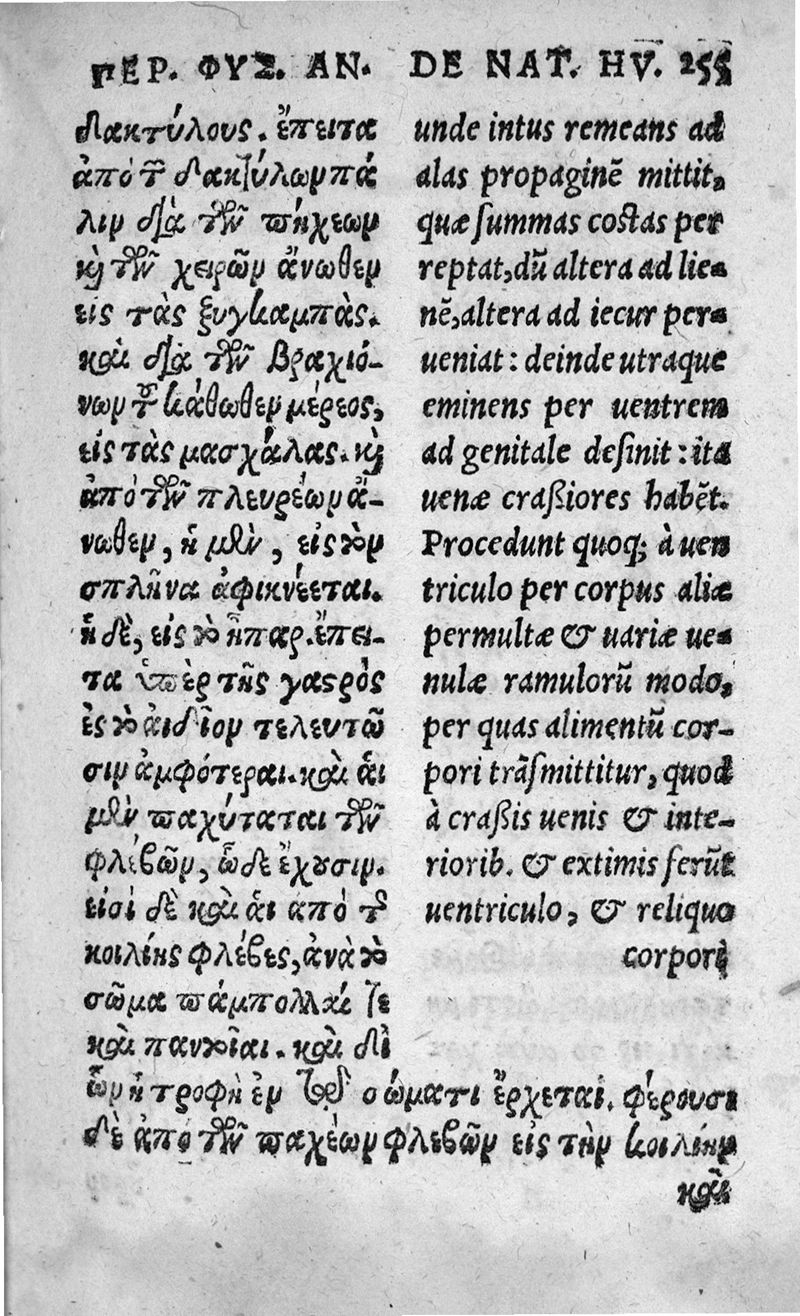 ΠΕΡ. ΦΥΣ. ΑΝ.
δακτύλους. ἔπειτα
ἀπὸ τῶν δακτύλωμ πά
λιμ διὰ τῶν πήχεωμ
καὶ τῶν χειρῶμ ἄνωθεμ
εἰς τὰς ξυγκαμπὰς.
καὶ διὰ τῶν βραχιό-
νωμ τοῦ κάθωθεμ μέρεος,
εἰς τὰς μασχάλας. καὶ
ἀπὸ τῶν πλευρέωμ ἄ-
νωθεμ, ἡ μὲν, εἰς τὸμ
σπλῆνα ἀφικνέεται.
ἡ δὲ, εἰς τὸ ἧπαρ. ἔπει-
τα ὑπὲρ τῆς γαστρὸς
ἐς τὸ αἰδοῖομ τελευτῶ
σιμ ἀμφότεραι. καὶ ἁι
μὲν παχύταται τῶν
φλεβῶμ, ὧδε ἔχουσιμ.
εἰσὶ δὲ καὶ ἁι ἀπὸ τῆς
κοιλίης φλέβες, ἀνὰ τὸ
σῶμα πάμπολλαί τε
καὶ παντοῖαι. καὶ δι
ὧμ ἡ τροφὴ ἐμ τῷ σώματι ἔρχεται. φέρουσι
δὲ ἀπὸ τῶν παχέωμ φλεβῶμ εἰς τὴμ κοιλίημ
καὶ
DE NAT. HV. 255
unde intus remeans ad
alas propaginē mittit,
quæ summas costas per
reptat, dū altera ad lie=
nē, altera ad iecur per=
ueniat: deinde utraque
eminens per uentrem
ad genitale desinit: ita
uenæ craßiores habēt.
Procedunt quoq; à uen
triculo per corpus aliæ
permultæ & uariæ ue=
nulæ ramulorū modo,
per quas alimentū cor-
pori trāsmittitur, quod
à craßis uenis & inte-
riorib. & extimis ferūt
uentriculo, & reliquo
corpori